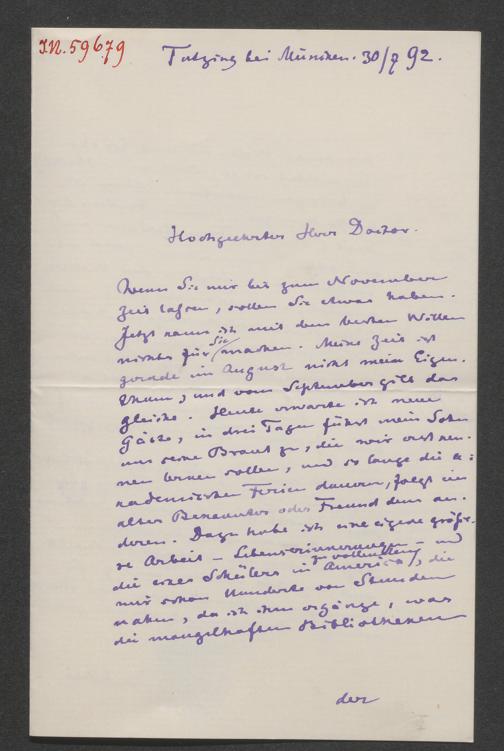 IN. 59679
Tutzing bei München. 30/7 92.
Hochgeehrter Herr Doctor.
Wenn Sie mir bis zum November
Zeit lassen, sollen Sie etwas haben.
Jetzt kann ich mit dem besten Willen
nichts für Sie machen. Meine Zeit ist
gerade im August nicht mein Eigen-
thum, und vom September gilt das
gleiche. Heute erwarte ich neue
Gäste, in drei Tagen führt mein Sohn
uns seine Braut zu, die wir erst ken-
nen lernen sollen, und so lange die a=
kademischen Ferien dauern, folgt ein
alter Bekannter oder Freund dem an-
deren. Dazu habe ich eine eigene größe-
re Arbeit – Lebenserinnerungen – und
die eines Schülers in America zu vollenden, die
mir schon Hunderte von Stunden
nahm, da ich ihm ergänze, was
die mangelhaften Bibliotheken
der